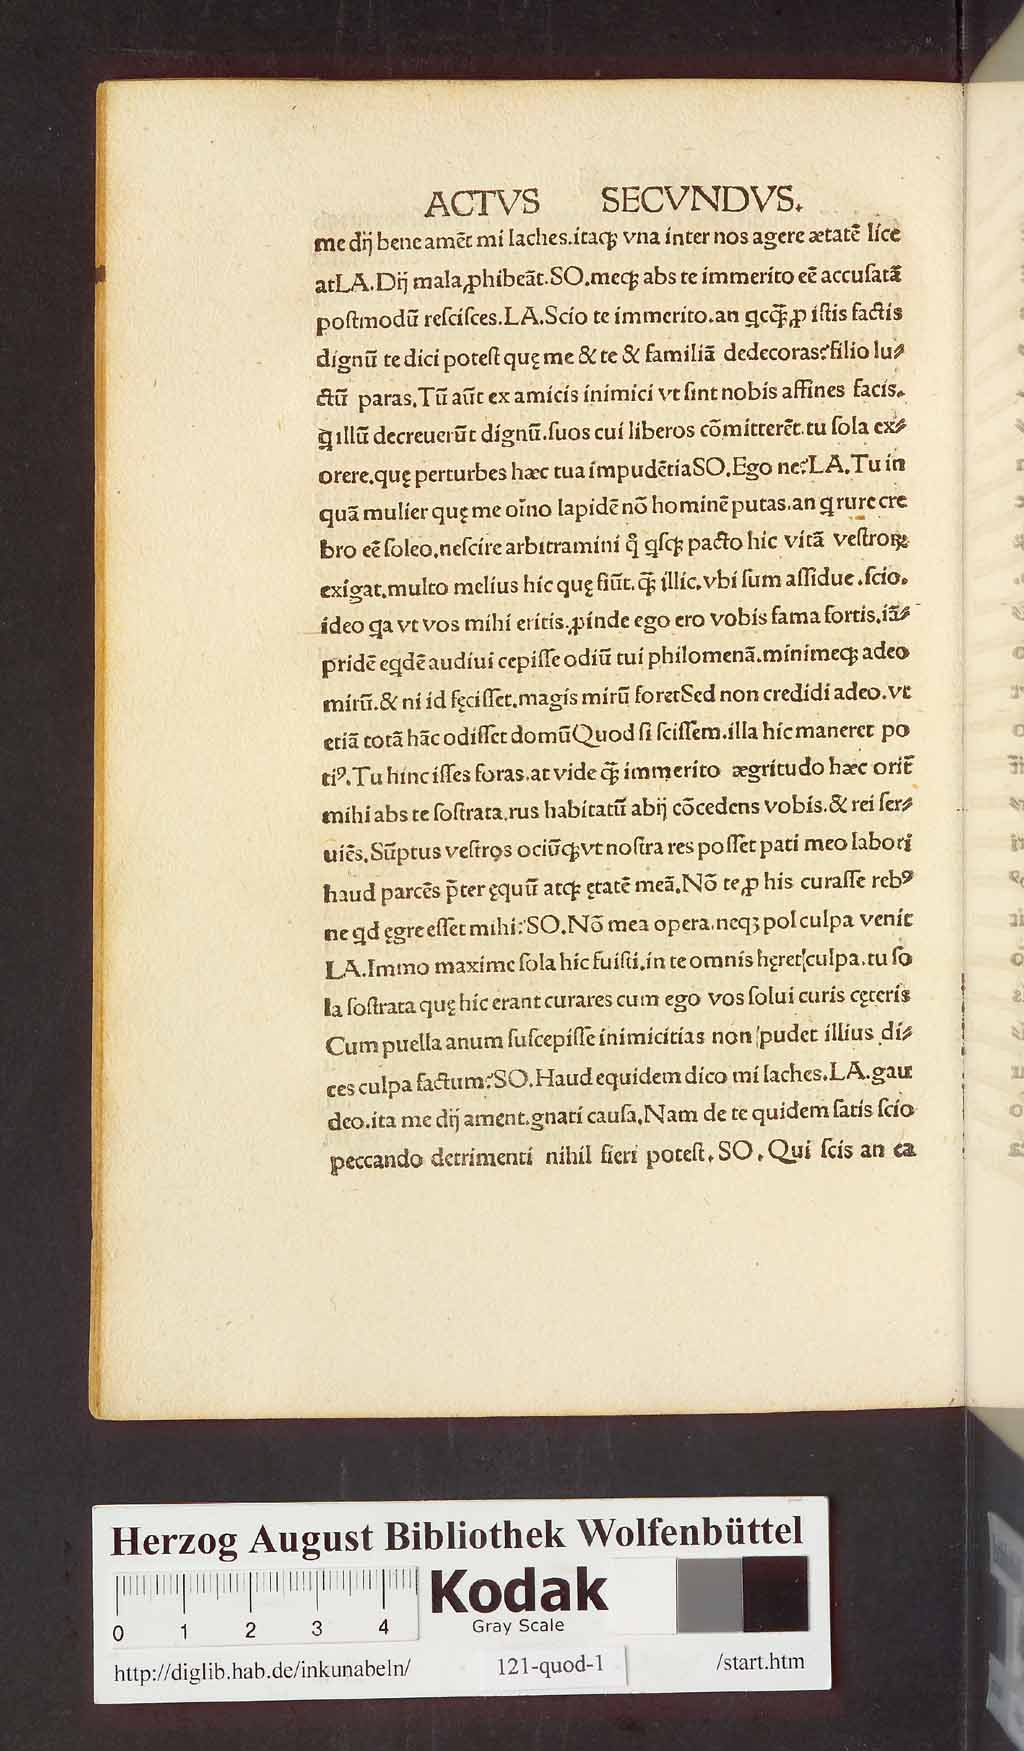 ACTVS SECVNDVS.
me dij bene amẽt mi laches.itaqꝫ vna inter nos agere ætatẽ lice
atLA.Dij mala ꝓhibeãt.SO.meqꝫ abs te immerito eẽ accuſatã
poſtmodũ reſciſces.LA.Scio te immerito.an qcq̃ꝫ ꝓ iſtis factis
dignũ te dici poteſt quę me & te & familiã dedecoras?filio lu⸗
ctũ paras.Tũ aũt ex amicis inimici vt ſint nobis affines facis.
q illũ decreuerũt dignũ.ſuos cui liberos cõmitterẽt.tu ſola ex⸗
orere.quę perturbes hæc tua impudẽtiaSO.Ego ne?LA.Tu in
quã mulier quę me oĩno lapidẽ nõ hominẽ putas.an q rure cre
bro eẽ ſoleo.neſcire arbitramini q̊ qſqꝫ pacto hic vitã veſtroꝝ
exigat.multo melius hic quę fiũt.q̃ꝫ illic.vbi ſum aſſidue.ſcio.
ideo qa vt vos mihi eritis.ꝓinde ego ero vobis fama fortis.iã⸗
pridẽ eqdẽ audiui cepiſſe odiũ tui philomenã.minimeqꝫ adeo
mirũ.& ni id fęciſſet.magis mirũ foretSed non credidi adeo.vt
etiã totã hãc odiſſet domũQuod ſi ſciſſem.illa hic maneret po
tiꝰ.Tu hinc iſſes foras.at vide q̃ꝫ immerito ægritudo hæc orit̃
mihi abs te ſoſtrata.rus habitatũ abij cõcedens vobis.& rei ſer⸗
uiẽs.Sũptus veſtros ociũqꝫvt noſtra res poſſet pati meo labori
haud parcẽs p̃ter ęquũ atqꝫ ętatẽ meã.Nõ te ꝓ his curaſſe rebꝰ
ne qd ęgre eſſet mihi?SO.Nõ mea opera.neqꝫ pol culpa venit
LA.Immo maxime ſola hic fuiſti.in te omnis hęret culpa.tu ſo
la ſoſtrata quę hic erant curares cum ego vos ſolui curis cęteris
Cum puella anum ſuſcepiſſe inimicitias non pudet illius di⸗
ces culpa factum?SO.Haud equidem dico mi laches.LA.gau
deo.ita me dij ament.gnati cauſa.Nam de te quidem ſatis ſcio
peccando detrimenti nihil fieri poteſt.SO.Qui ſcis an ea
Herzog August Bibliothek Wolfenbüttel
Kodak
Gray Scale
0 1 2 3 4
http://diglib.hab.de/inkunabeln/ 121-quod-1 /start.htm